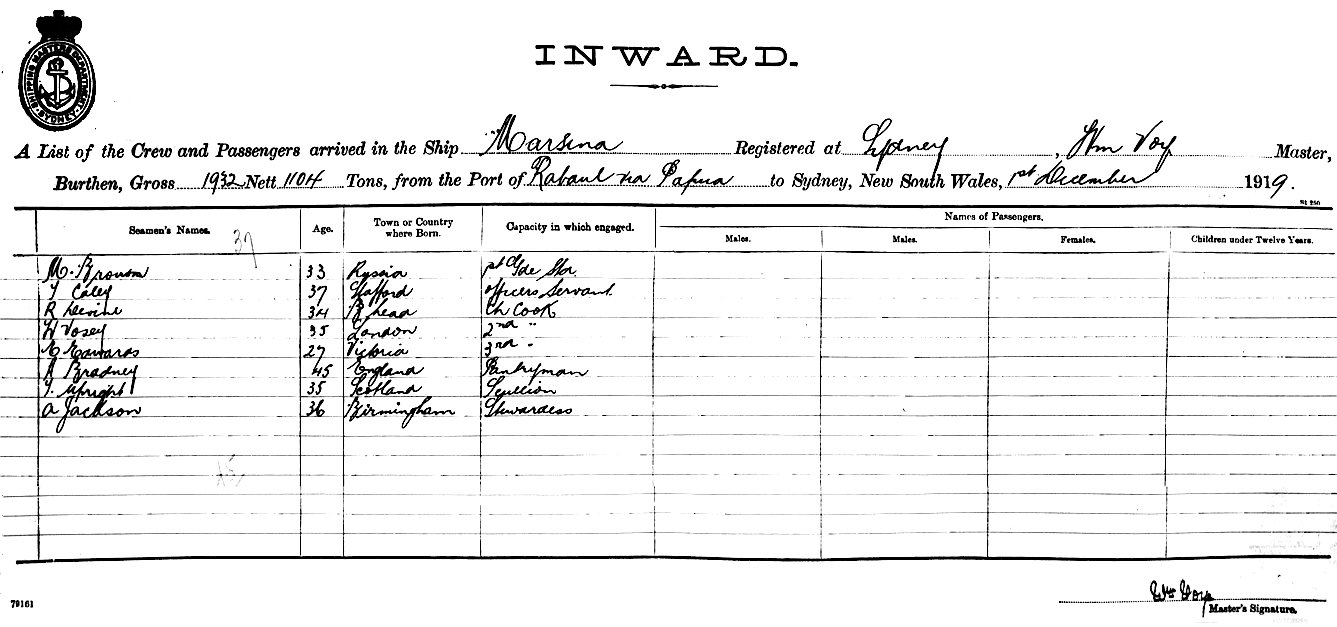 SHIPPING MASTERS DEPARTMENT
SYDNEY
INWARD.
A List of the Crew and Passengers arrived in the Ship Marsina Registered at Sydney, Wm Voy Master,
Burthen, Gross 1932 Nett 1104 Tons, from the Port of Rabaul via Papua to Sydney, New South Wales, 1st December 1919.
Seamen's Names. Age. Town or Country where Born. Capacity in which engaged. Names of Passengers.
Males. Males. Females. Children under Twelve Years.
37
M. 33 Russia
Caley 37 Stafford Officers Servant
R Devine 34 B head Ch Cook
W Vosey 35 London 2nd "
Edwards 27 Victoria 3rd "
A Bradney 45 England Pantryman
Upright 35 Scotland Scullion
A Jackson 36 Birmingham Stewardess
Wm Voy
Master's Signature.
79161